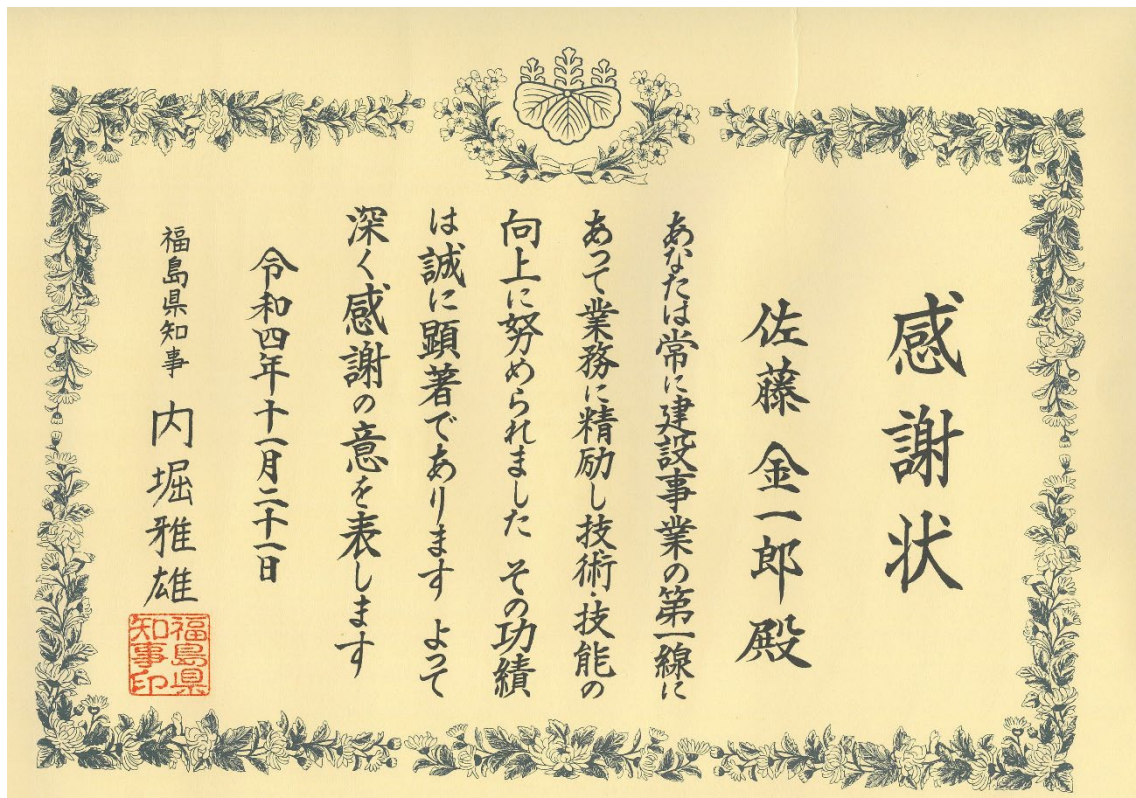 感謝状
佐藤金一郎殿
あなたは常に建設事業の第一線に
あって業務に精励し技術・技能の
向上に努められました その功績
は誠に顕著であります よって
深く感謝の意を表します
令和四年十一月二十一日
福島県知事 内堀雅雄
福島県
知事印